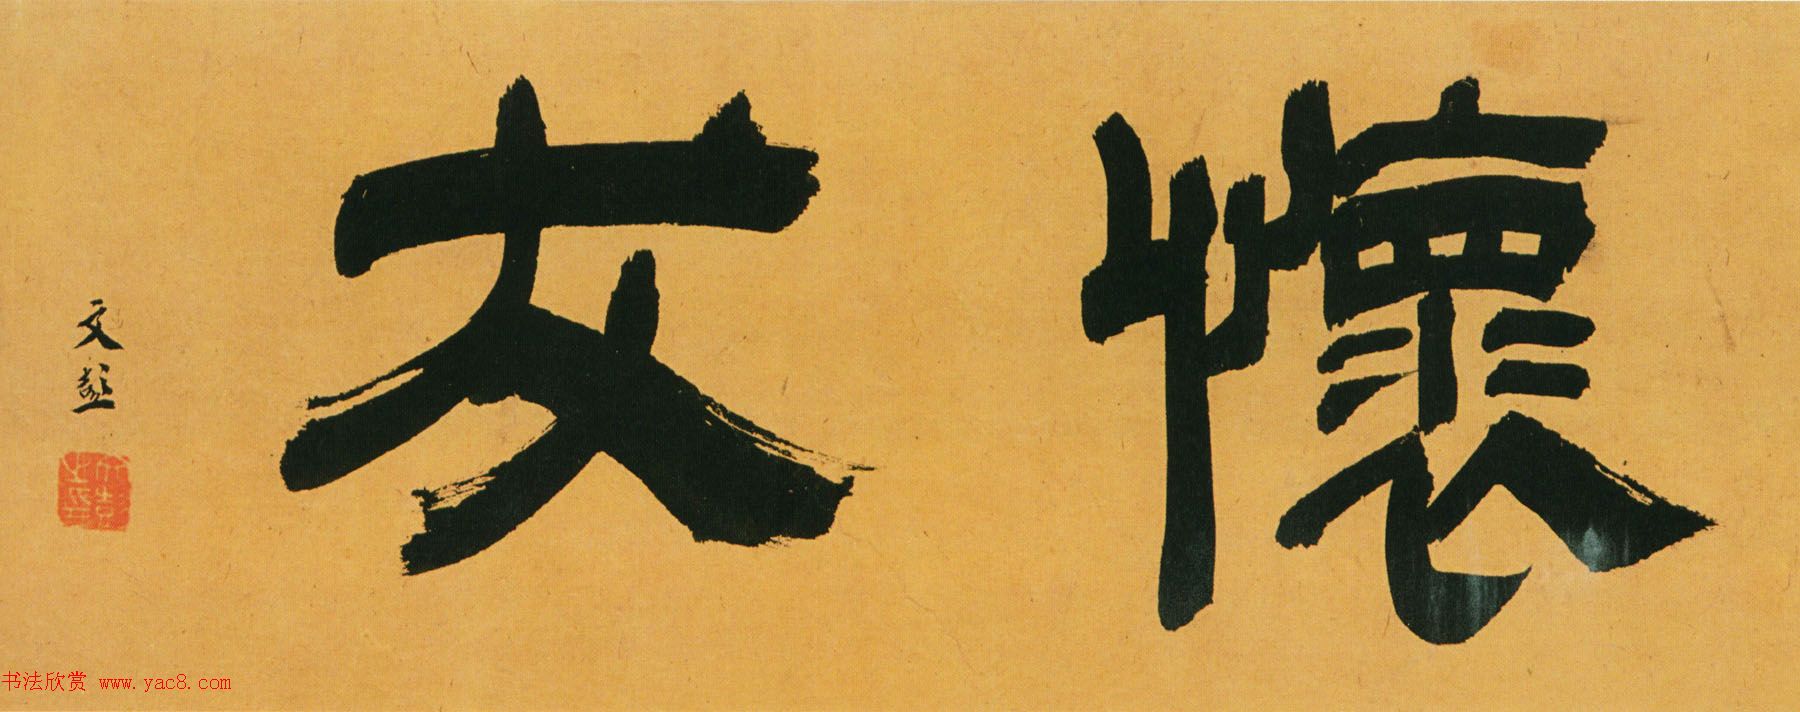 懷友
文彭
书法欣赏 www.yac8.com